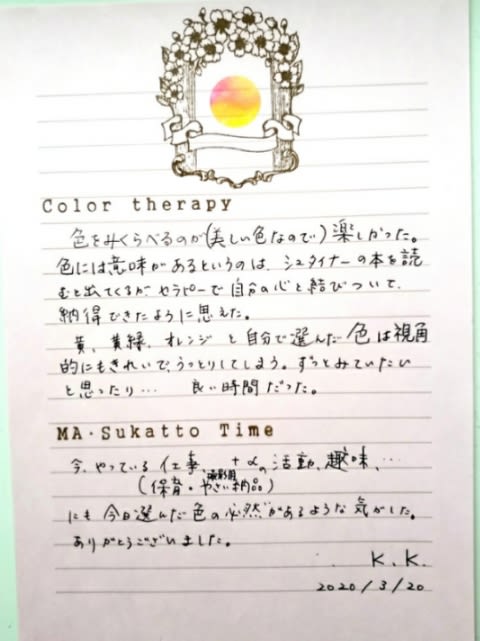 Color therapy
色をみくらべるのが(美しい色なので)楽しかった。
色には意味があるというのは、シュタイナーの本を読
むと出てくるが セラピーで自分の心と結びついて、
納得できたように思えた。
黄、黄緑、オレンジ と自分で選んだ 色は視角
的にもきれいで、うっとりしてしまう。ずっとみていたい
と思ったり… 良い時間だった。
MA・Sukatto Time
今、やっている仕事、+αの活動、趣味、…
撮影用
(保育・やさい納品)
にも今日選んだ色の必然があるような気がした。
ありがとうございました。
K.K.
2020/3/20